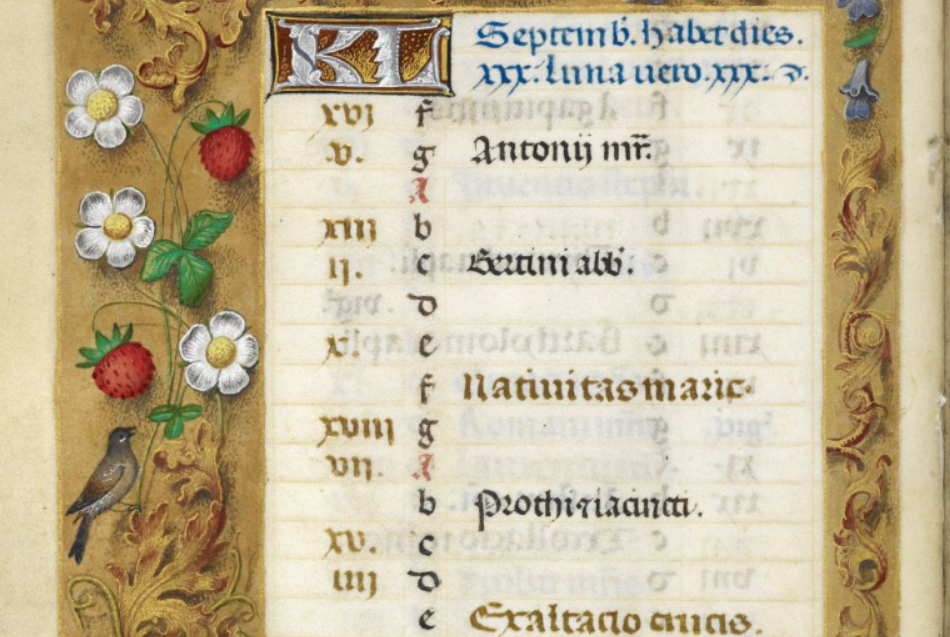 KL Septemb. habet dies.
xxx. luna uero. xxx. ⁊.
xvj f
.v. g Antonij mr̄.
A
xiij b
ij. c Bertini abb̄.
d
x. e
f Natiuitas marie.
xviij g
vij. A
b Prothi ⁊ iacincti.
xv. c
iiij d
e Exaltacio crucis.